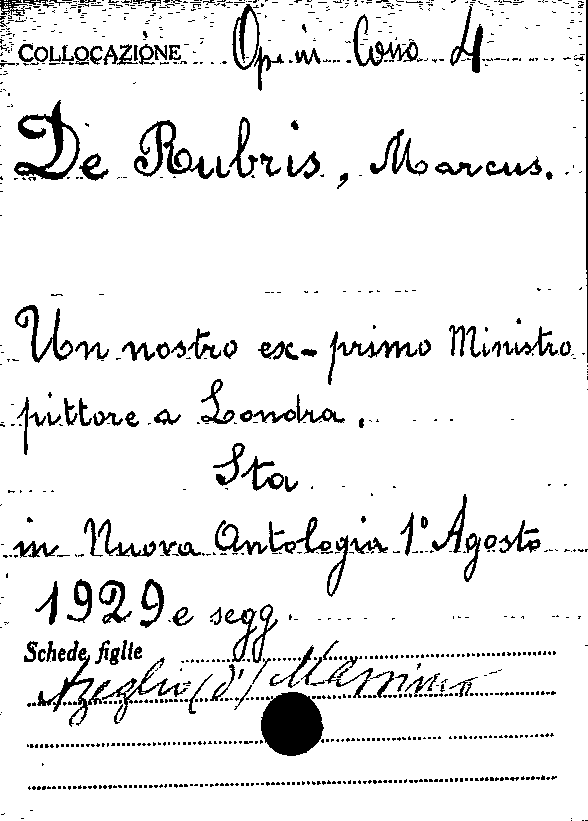 COLLOCAZIONE Op. in Cons 4
De Rubris, Marcus.
Un nostro ex-primo Ministro
pittore a Londra.
Sta
in Nuova Antologia 1° Agosto
1929 e segg.
Schede figlie
Azeglio (d') Massimo